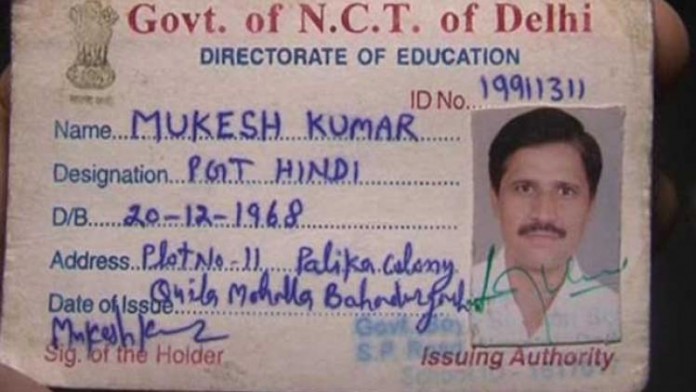 Govt. of N.C.T. of Delhi
DIRECTORATE OF EDUCATION
ID No. 19911311
Name...MUKESH KUMAR
Designation...PGT HINDI
D/B.....20-12-1968
Address..Plot No-11, Palika Colony
Quila Mohalla
Date of Issue
Mukesh
Sig. of the Holder
Issuing Authority